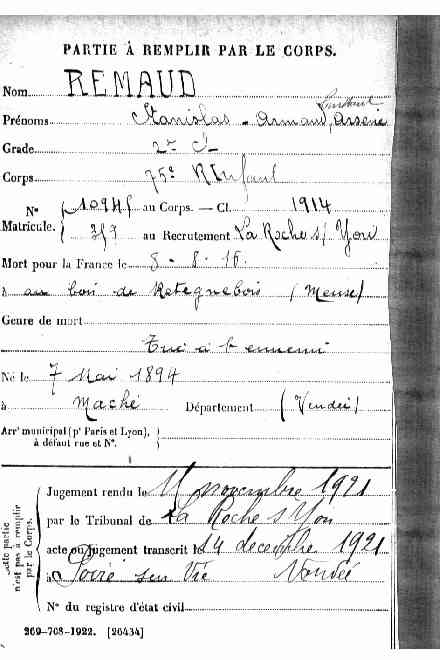 PARTIE À REMPLIR PAR LE CORPS.
Nom REMAUD
Prénoms Stanislas - Armand, Arsène
Grade 2e Cl
Corps 75e R Infant
N° Matricule. { 10948 au Corps. — Cl. 1914
au Recrutement La Roche s/ Yon
Mort pour la France le 8 - 8 - 16
à au bois de (Meuse)
Genre de mort
Tué à l'ennemi
Né le 7 Mai 1894
à Maché Département (Vendée)
Arrt municipal (pr Paris et Lyon), à défaut rue et N°.
Cette partie n'est pas à remplir par le Corps.
Jugement rendu le 11 novembre 1921
par le Tribunal de La Roche s Yon
acte ou jugement transcrit le 14 decembre 1921
à Poiré sur Vie Vendée
N° du registre d'état civil
269-708-1922. [26434]